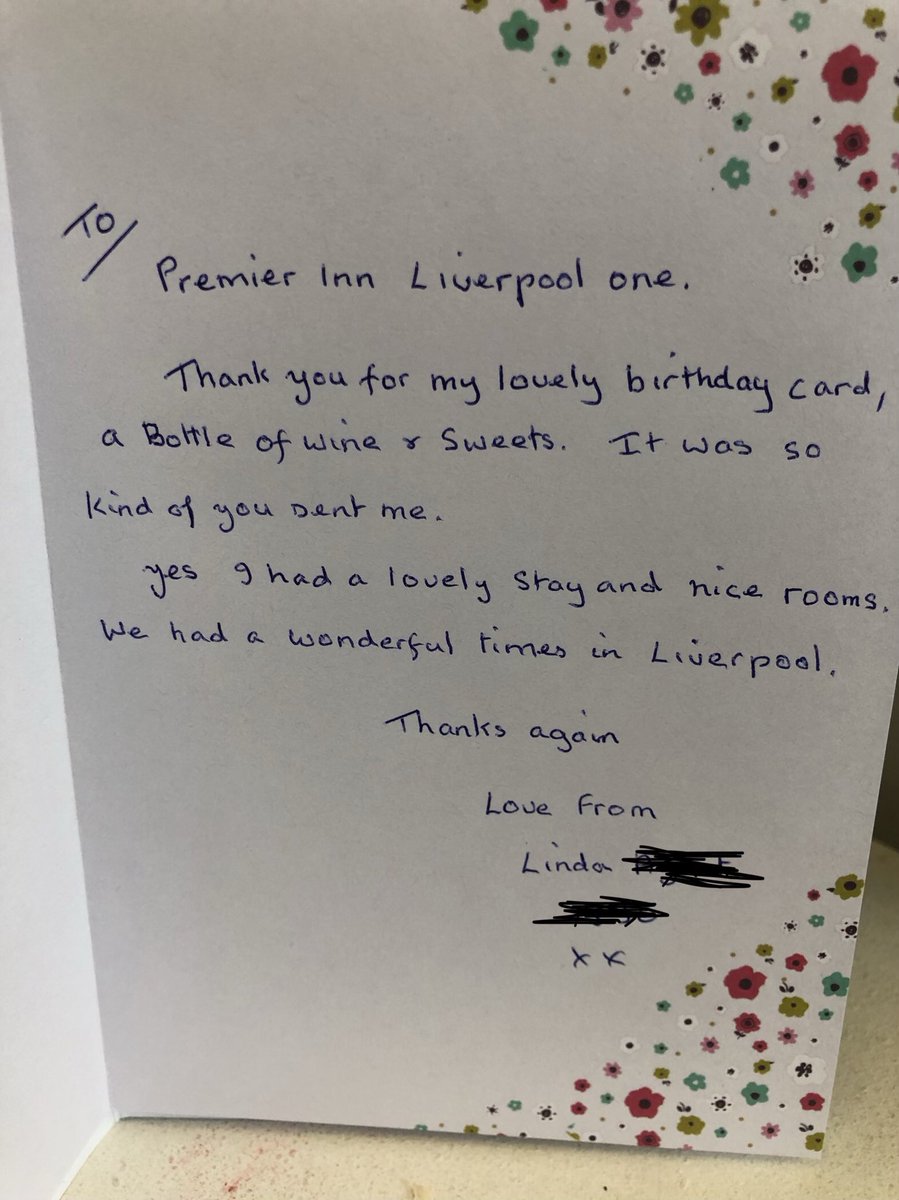 To/
Premier Inn Liverpool one.
Thank you for my lovely birthday card,
a Bottle of wine & Sweets. It was so
kind of you sent me.
yes I had a lovely stay and nice rooms.
We had a wonderful times in Liverpool.
Thanks again
Love From
Linda
xx